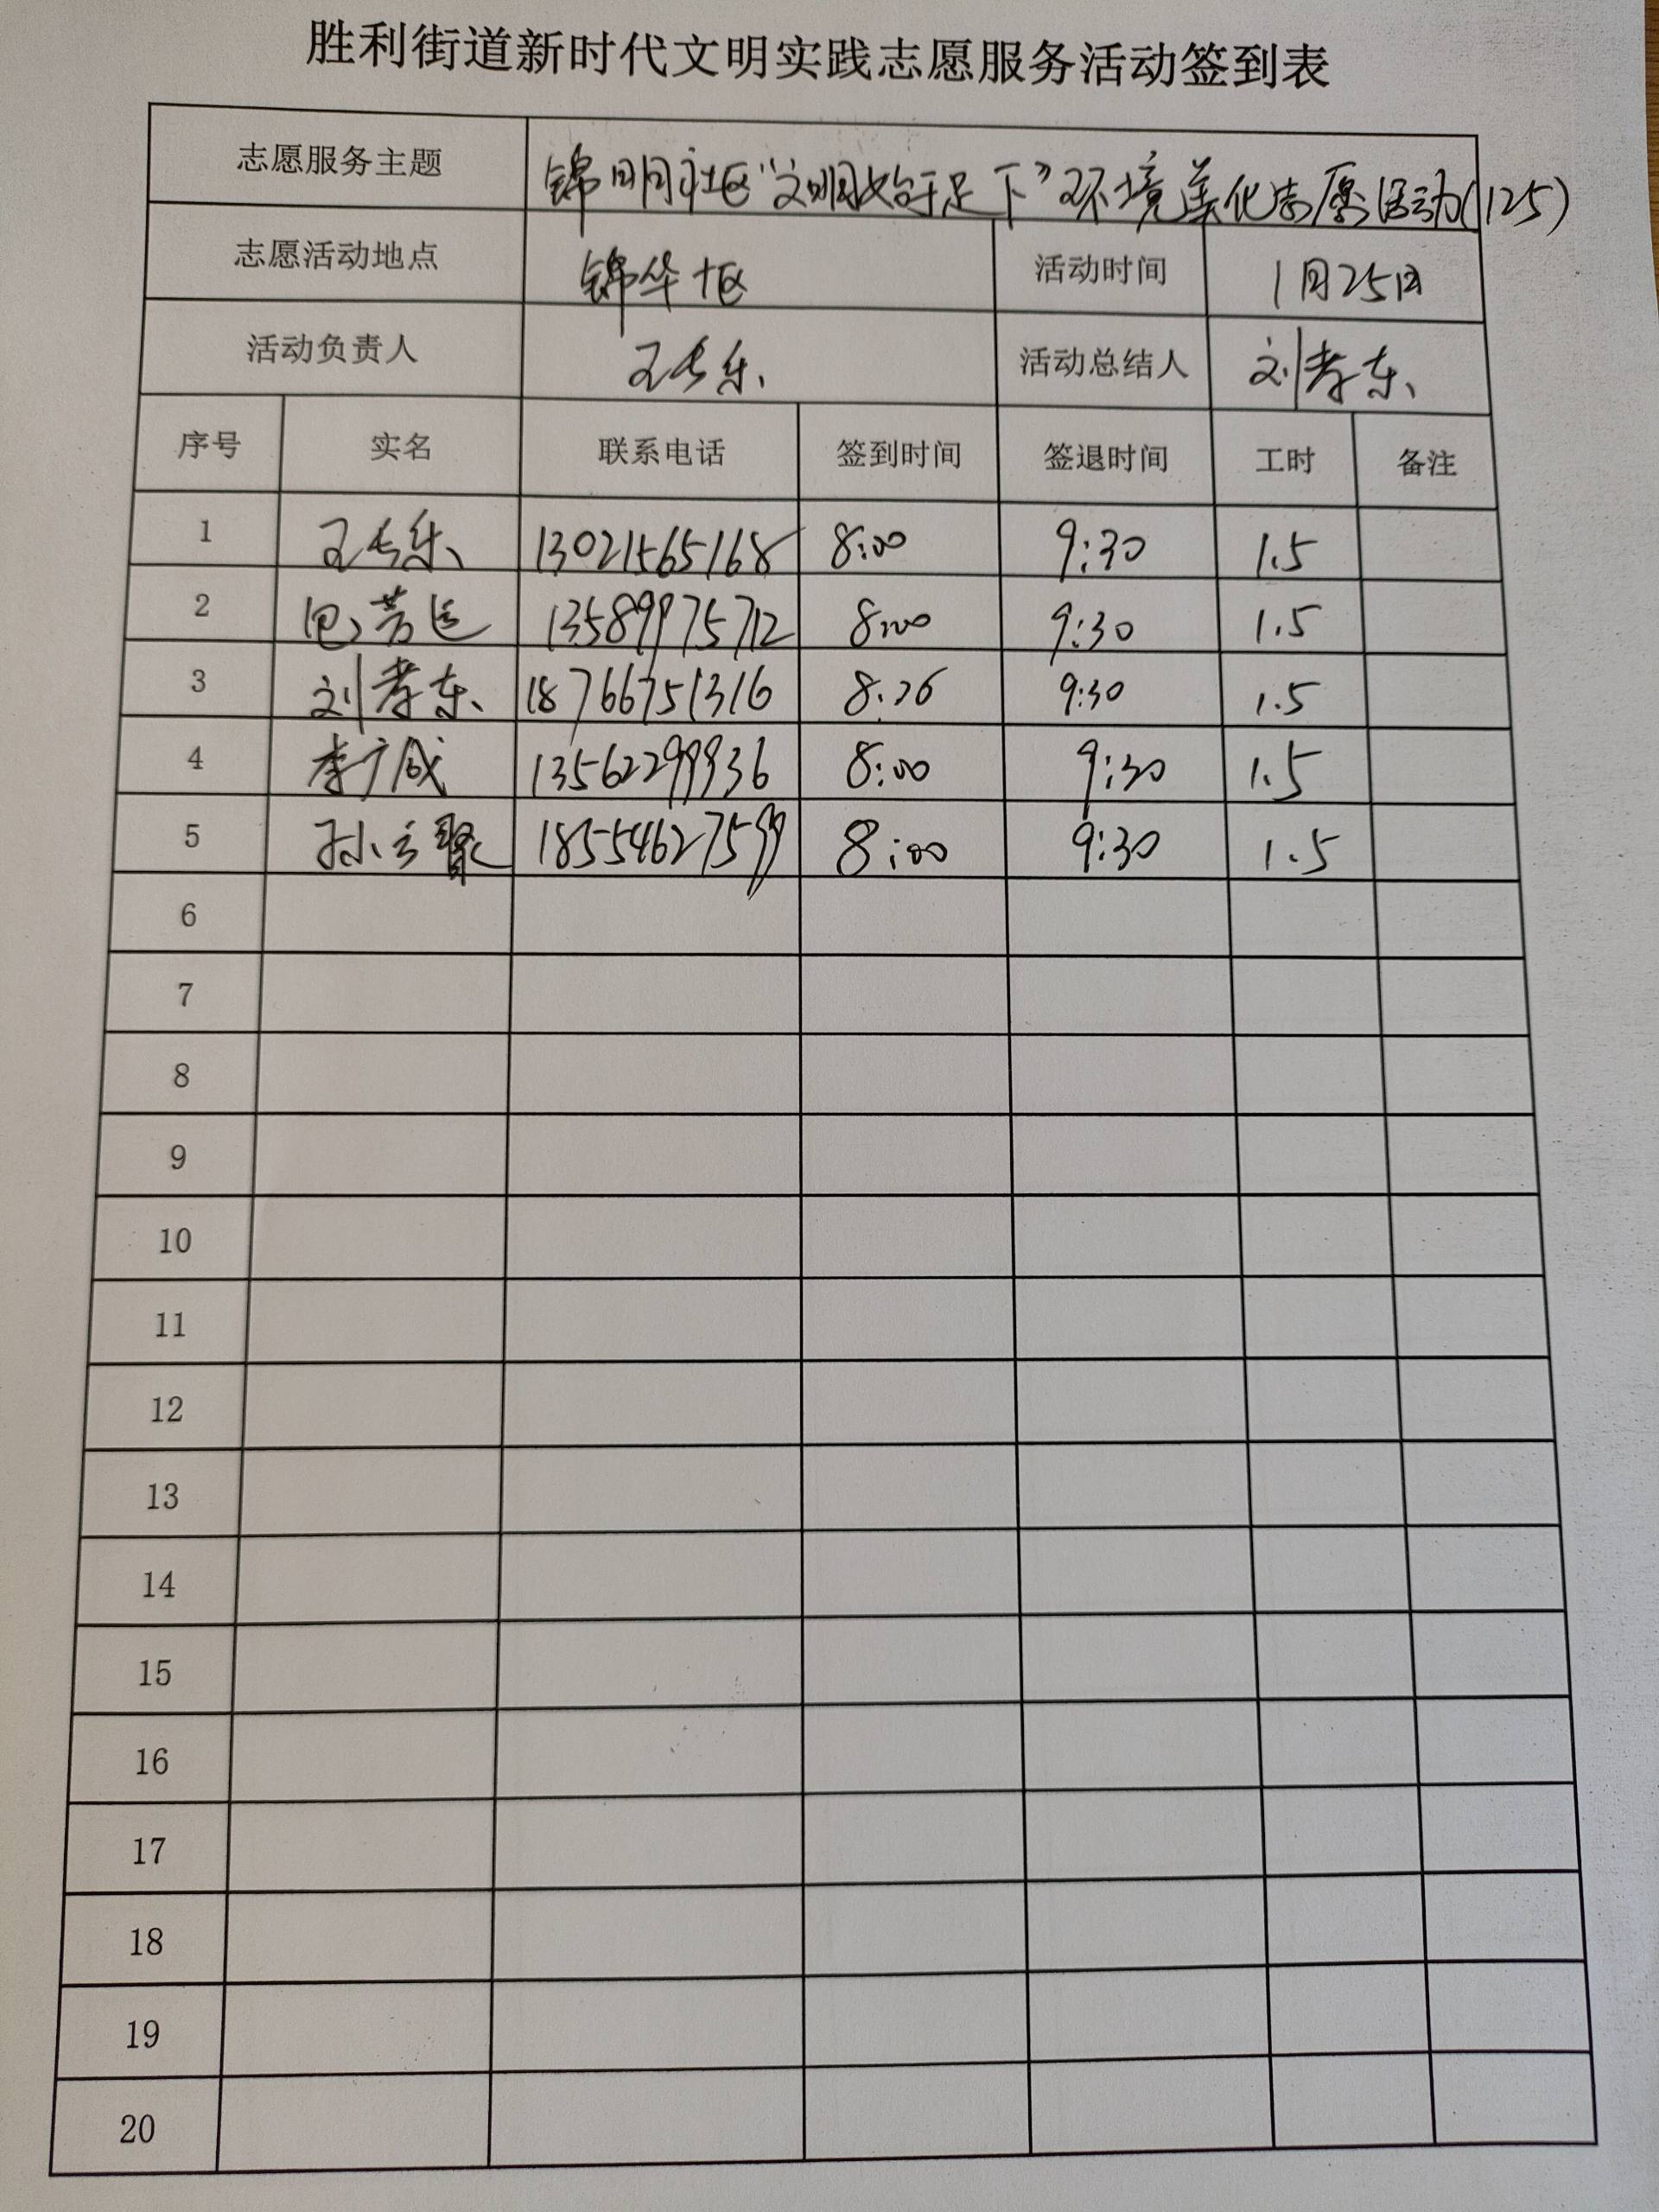 胜利街道新时代文明实践志愿服务活动签到表
志愿服务主题 锦明社区“文明始于足下”环境美化志愿活动(125)
志愿活动地点 锦华十区 活动时间 1月25日
活动负责人 王长乐 活动总结人 刘孝东
序号 实名 联系电话 签到时间 签退时间 工时 备注
1 王长乐 13021565168 8:00 9:30 1.5
2 13589975712 8:00 9:30 1.5
3 刘孝东 18766751316 9:30 1.5
4 李广成 13562299936 8:00 9:30 1.5
5 18554627599 8:00 9:30 1.5
6
7
8
9
10
11
12
13
14
15
16
17
18
19
20